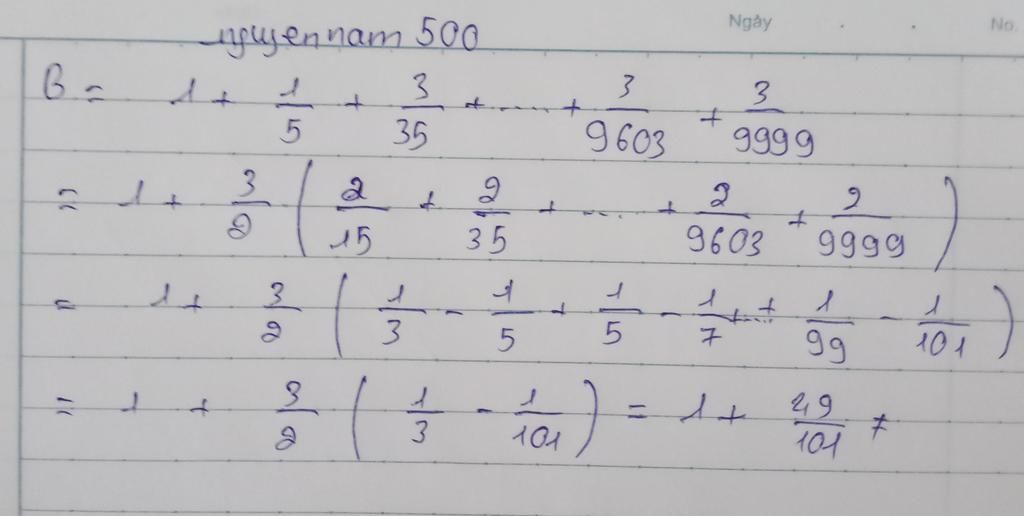 Ngày . . No.
nguyennam 500
B = 1 + 1/5 + 3/35 + ..... + 3/9603 + 3/9999
= 1 + 3/2 ( 2/15 + 2/35 + ..... + 2/9603 + 2/9999 )
= 1 + 3/2 ( 1/3 - 1/5 + 1/5 - 1/7 + ... + 1/99 - 1/101 )
= 1 + 3/2 ( 1/3 - 1/101 ) = 1 + 49/101